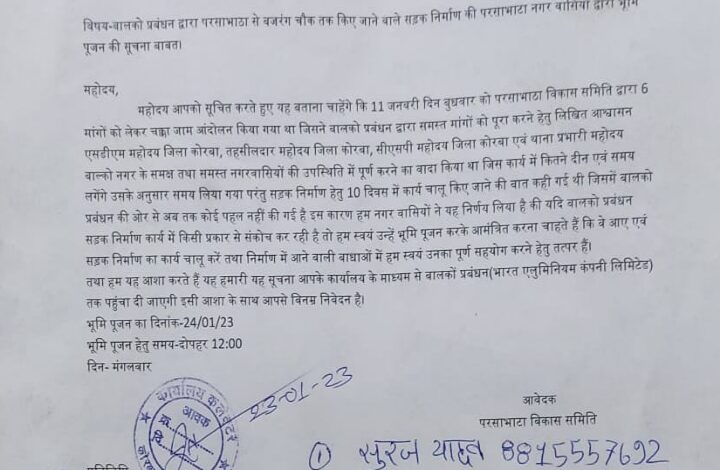 विषय-बालको प्रबंधन द्वारा परसाभाठा से बजरंग चौक तक किए जाने वाले सड़क निर्माण की परसाभाटा नगर वासियों द्वारा भूमि
पूजन की सूचना बाबत।
महोदय,
महोदय आपको सूचित करते हुए यह बताना चाहेंगे कि 11 जनवरी दिन बुधवार को परसाभाठा विकास समिति द्वारा 6
मांगों को लेकर चक्का जाम आंदोलन किया गया था जिसने बालको प्रबंधन द्वारा समस्त मांगों को पूरा करने हेतु लिखित आश्वासन
एसडीएम महोदय जिला कोरबा, तहसीलदार महोदय जिला कोरबा, सीएसपी महोदय जिला कोरबा एवं थाना प्रभारी महोदय
बाल्को नगर के समक्ष तथा समस्त नगरवासियों की उपस्थिति में पूर्ण करने का वादा किया था जिस कार्य में कितने दीन एवं समय
लगेंगे उसके अनुसार समय लिया गया परंतु सड़क निर्माण हेतु 10 दिवस में कार्य चालू किए जाने की बात कही गई थी जिसमें बालको
प्रबंधन की ओर से अब तक कोई पहल नहीं की गई है इस कारण हम नगर वासियों ने यह निर्णय लिया है की यदि बालको प्रबंधन
सड़क निर्माण कार्य में किसी प्रकार से संकोच कर रही है तो हम स्वयं उन्हें भूमि पूजन करके आमंत्रित करना चाहते हैं कि वे आए एवं
सड़क निर्माण का कार्य चालू करें तथा निर्माण में आने वाली बाधाओं में हम स्वयं उनका पूर्ण सहयोग करने हेतु तत्पर हैं।
तथा हम यह आशा करते हैं यह हमारी यह सूचना आपके कार्यालय के माध्यम से बालकों प्रबंधन(भारत एलुमिनियम कंपनी लिमिटेड)
तक पहुंचा दी जाएगी इसी आशा के साथ आपसे विनम्र निवेदन है।
भूमि पूजन का दिनांक-24/01/23
भूमि पूजन हेतु समय-दोपहर 12:00
दिन- मंगलवार
कार्यालय कलेक्टर
आवक
23-01-23
आवेदक
परसाभाटा विकास समिति
① सुरज यादव 8815557692